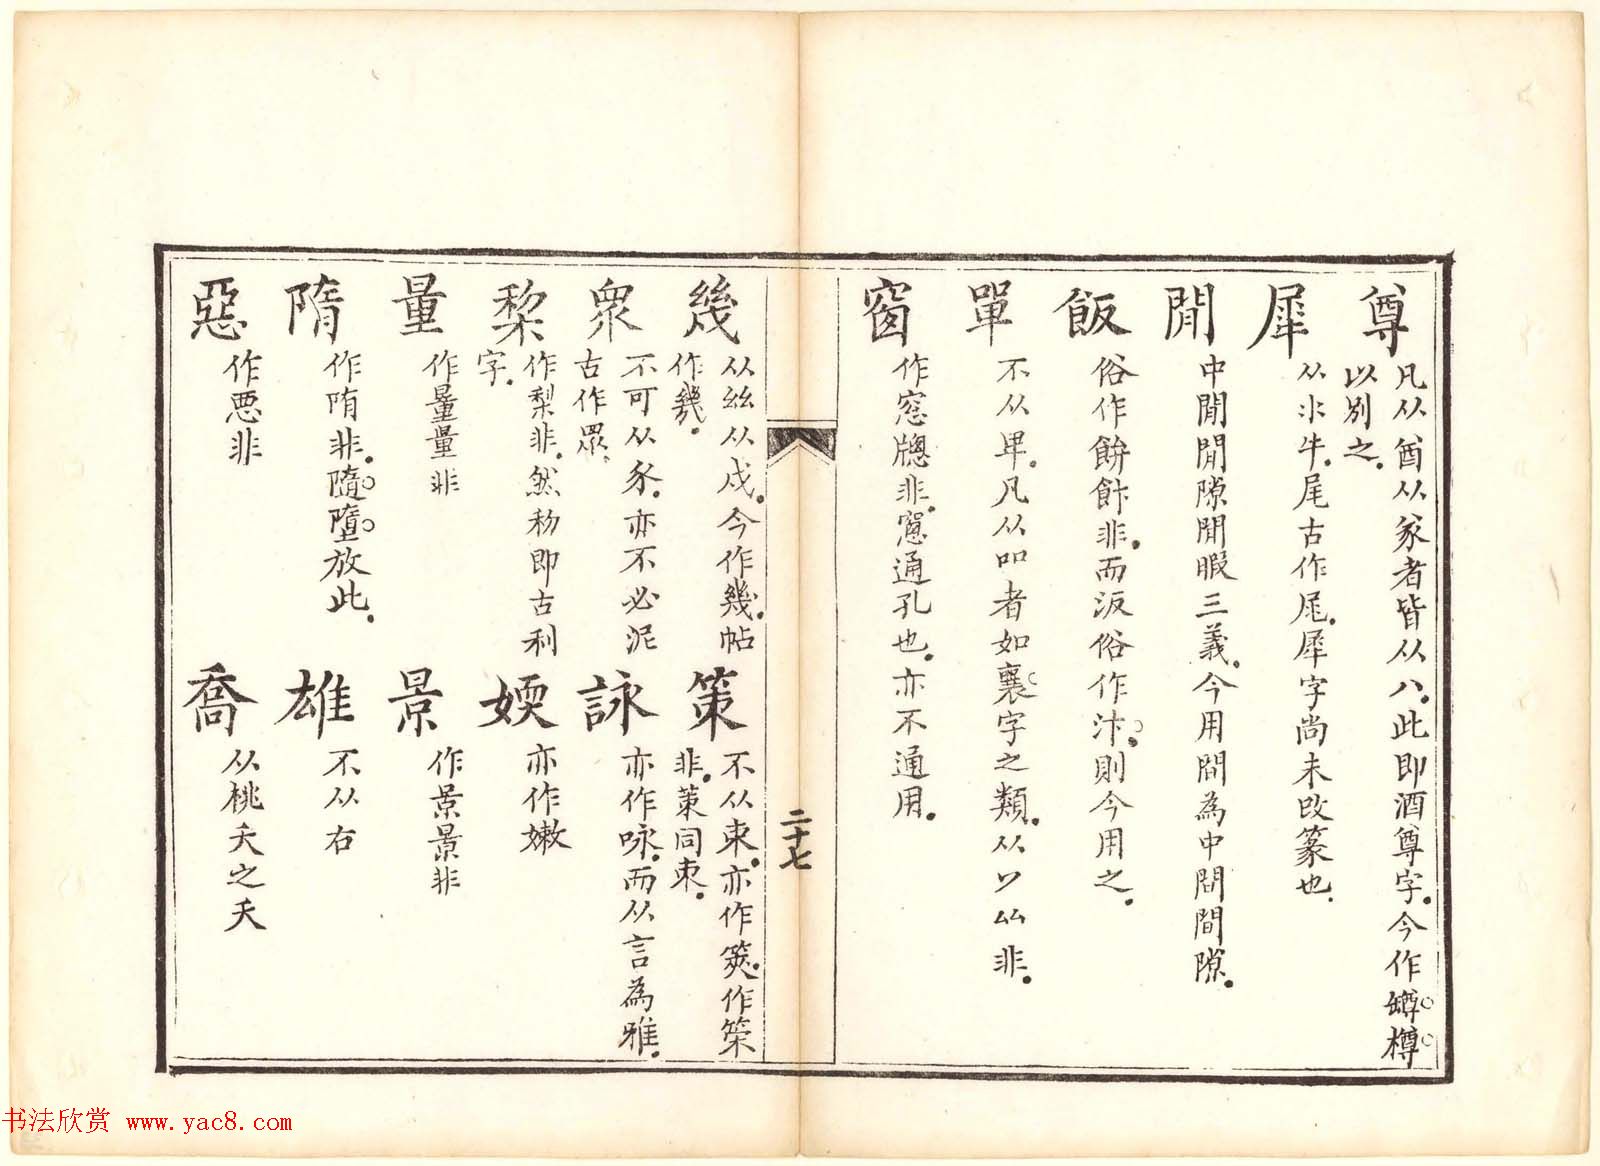 尊
凡从酋从豖者皆从八。此即酒尊字。今作罇樽
以別之。
犀
从氺牛。尾古作𡱒。犀字尚未改篆也。
閒
中閒閒隙閒暇三義。今用間為中間間隙。
飯
俗作餅飰非。而汳俗作汴。則今用之。
單
不从毕。凡从吅者如襄字之類。从丷厸非。
窗
作窓牎非。窻通孔也。亦不通用。
二十七
幾
从丝从戍。今作幾。帖
作㡬。
衆
不可从豖。亦不必泥
古作眾。
棃
作梨非。然秎即古利
字。
量
作量量非
隋
作隋非。隨墮放此。
惡
作悪非
策
不从束。亦作筴。作筞
非。策同朿。
詠
亦作咏。而从言為雅。
媆
亦作嫩
景
作景景非
雄
不从右
喬
从桃夭之夭
书法欣赏 www.yac8.com